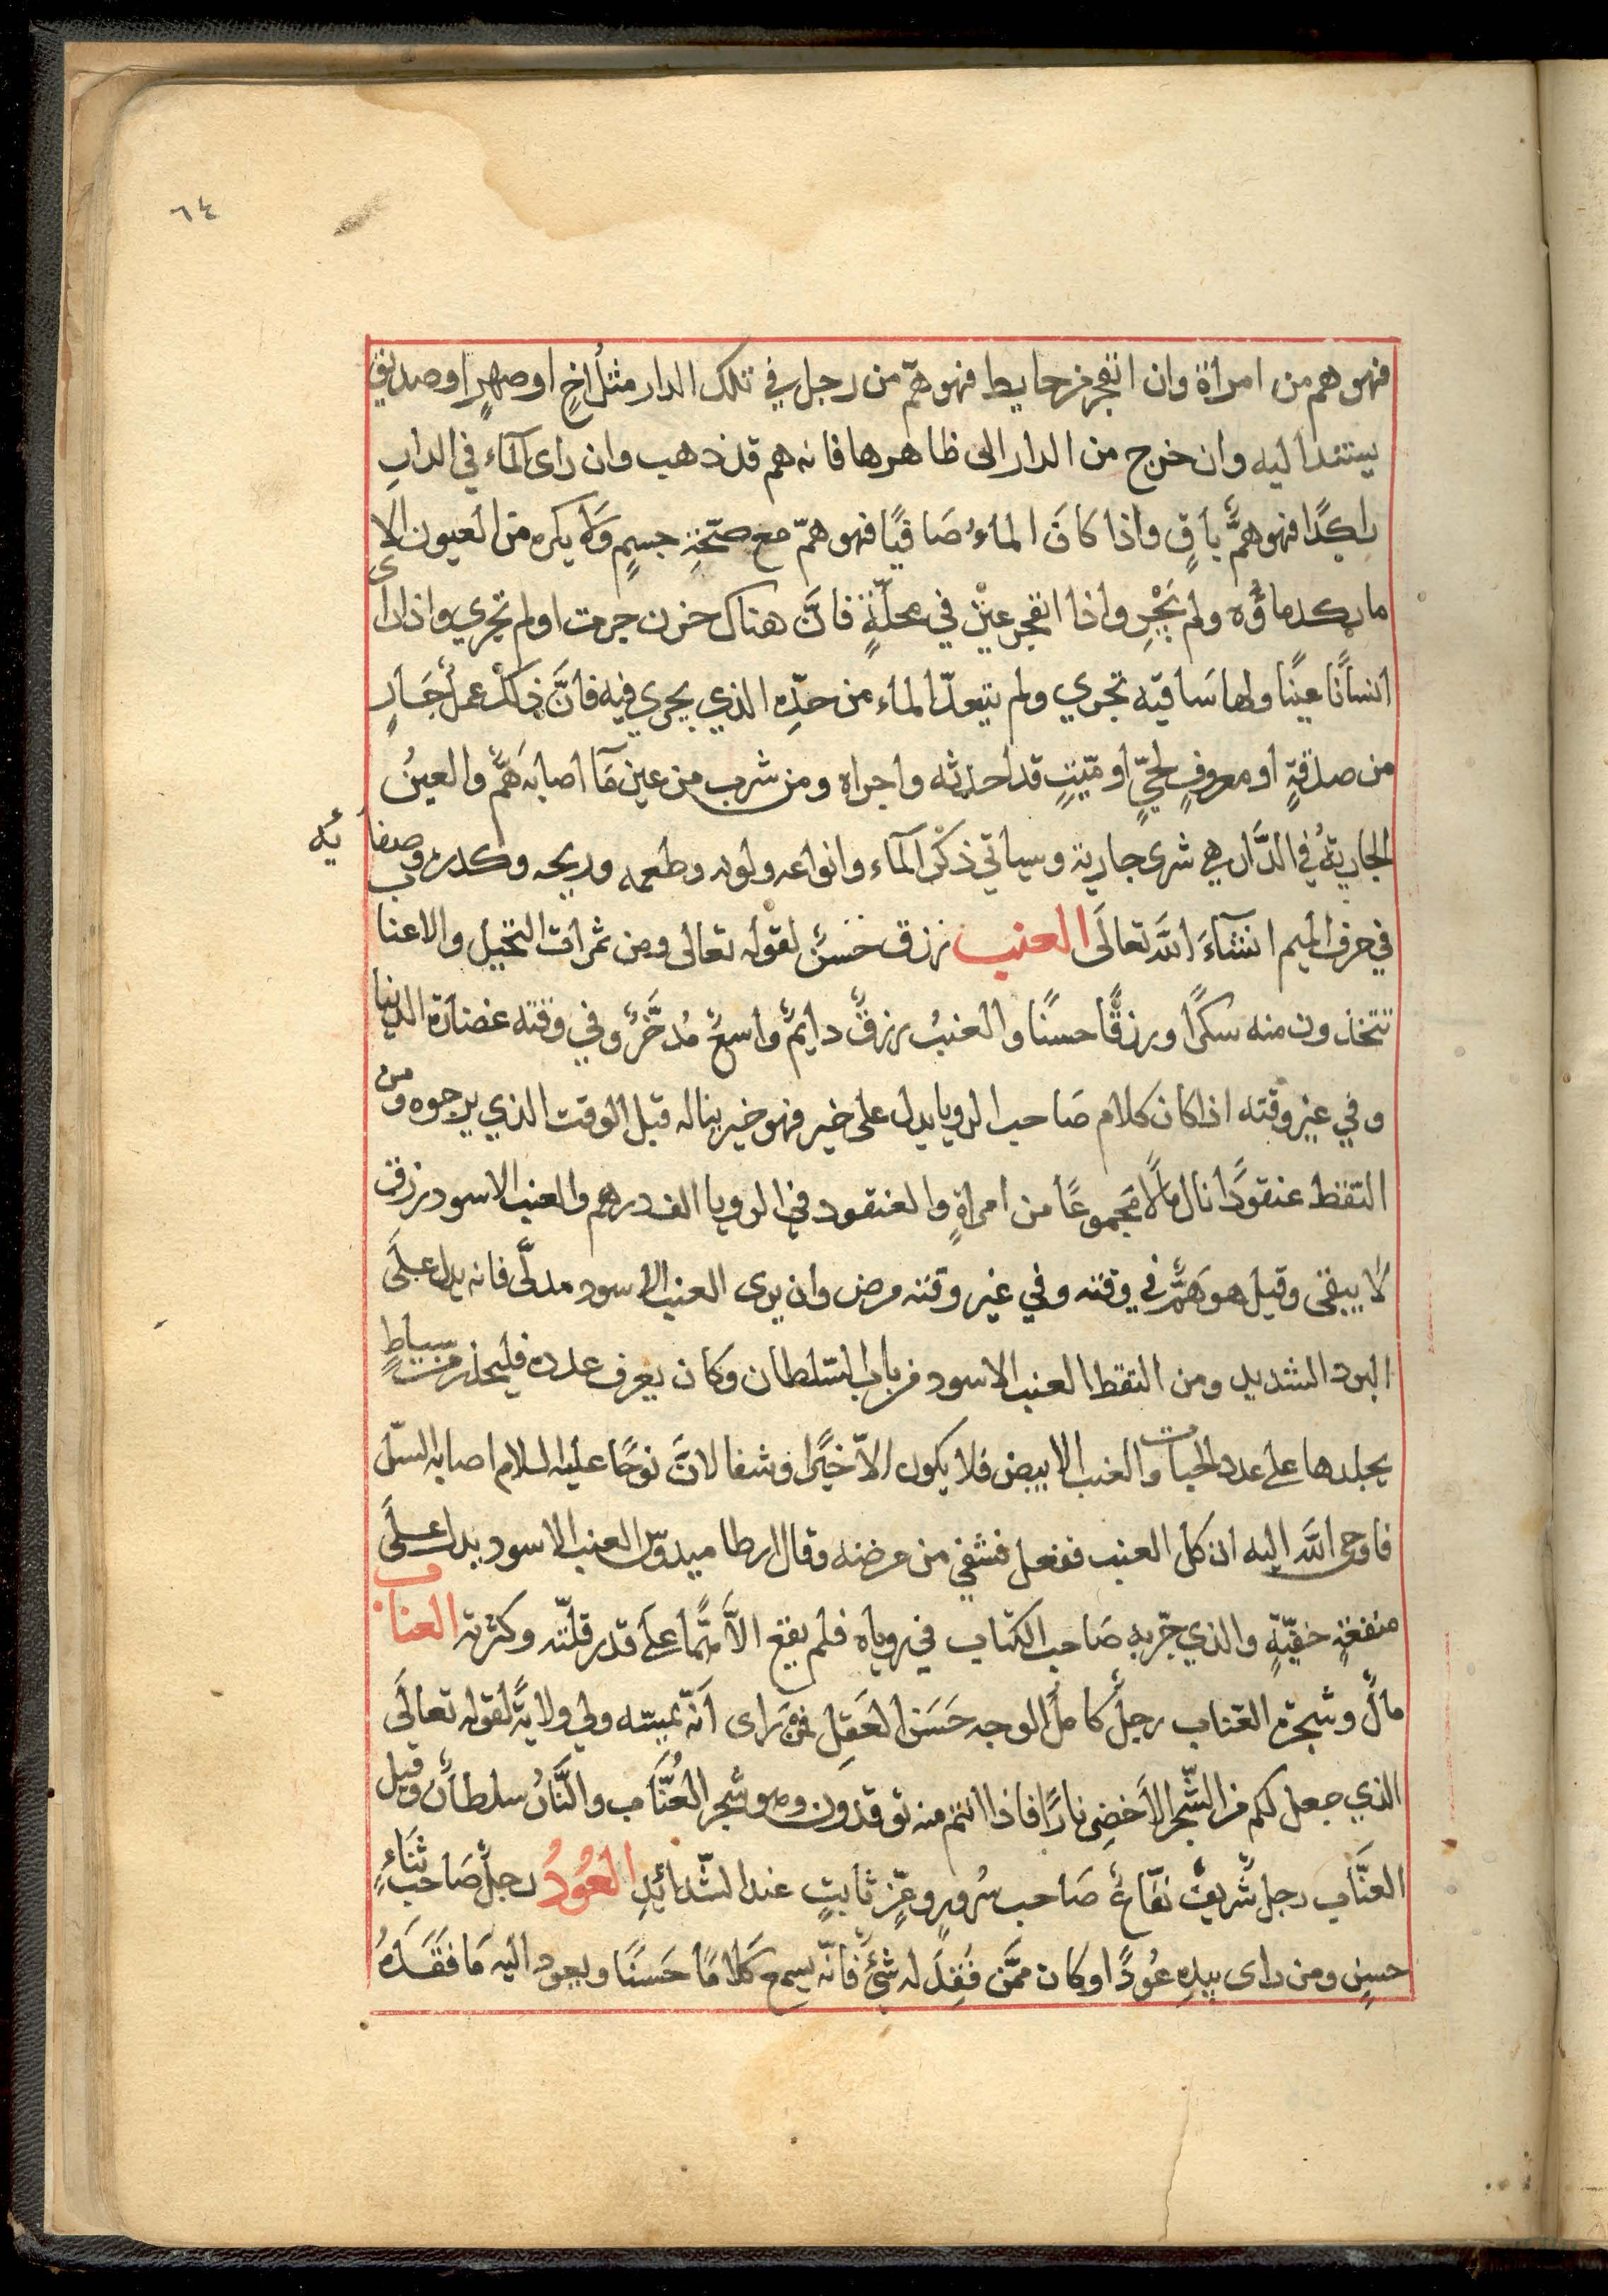 ٦٤
فهو هم من امراة وان انفجر من حايط فهو همّ من رجل في تلك الدار مثل اخٍ او صهرٍ او صديق
يستند اليه وان خرج من الدار الى ظاهرها فانه هم قد ذهب وان راى المآء في الدارِ
راكدًا فهو همٌّ باقٍ واذا كانَ الماءُ صَافيًا فهو همّ مع صحّةِ جسمٍ ولَا يكره من العيون الا
ما ركد ماؤُه ولم يَجْرِ واذا انفجر عينٌ في محلّةٍ فانَّ هناك حزن جرت او لم تجري واذا راى
انسانًا عينًا ولها سَاقيه تجري ولم يتعدّ الماء من حدِّه الذي يجري فيه فانَّ ذلك عملٌ جَارٍ
من صدقةٍ او معروفٍ لحيٍّ او ميّتٍ قد احدثه واجراه ومن شرب من عين مَآء اصابه همٌّ والعينُ
الجاريةُ في الدَّار هي شرى جارية وسياتي ذكر المآء وانواعه ولونه وطعمه وريحه وكدره وصفا
ئه
في حرف الميم انشآءَ اللّٰه تعالَى العنب رزق حَسَنٌ لقوله تعالى ومن ثمرات النخيل والاعناب
تتخذون منه سكرًا ورزقًا حسنًا والعنبُ رزقٌ دايمٌ واسعٌ مُدخَّرٌ وفي وقته غضارة الدنيا
وفي غير وقته اذا كان كلام صَاحب الرويا يدل على خير فهو خير يناله قبل الوقت الذي يرجوه ومن
التقط عنقودًا نال مالًا مجموعًا من امراةٍ والعنقود في الرويا الف درهم والعنب الاسود رزق
لا يبقى وقيل هو همٌّ في وقته وفي غير وقته مرض وان يرى العنب الاسود مدلَّى فانه يدل علَى
البرد الشديد ومن التقط العنب الاسود من باب السّلطان وكان يعرف عدده فليحذر من سياطٍ
يجلدها على عدد الحبات والعنب الابيض فلا يكون الاّ خيرًا وشفا لانَّ نوحًا عليه السلام اصابه السّل
فاوحى اللّٰه اليه ان كل العنب ففعل فشفي من مرضه وقال ارطاميدوس العنب الاسود يدل علَى
منفعةٍ خفيّةٍ والذي جرّبه صَاحب الكتاب في روياه فلم يقع الاَّ همًّا على قدر قلّته وكثرته العناب
مالٌ وشجرة العناب رجلٌ كاملُ الوجه حَسَن العَقِل فمن راى انّه يمسّه ولي ولايةً لقوله تعالَى
الذي جعل لكم من الشّجر الاَخضرِ نارًا فاذا انتم منه توقدون وهو شجر العُنَّاب والنَّارُ سلطانٌ وقيل
العنَّاب رجل شَريفٌ نفّاعٌ صَاحب سُرورٍ وعزٍّ ثابتٍ عند الشّدائدِ العُودُ رجلٌ صَاحبُ ثناءٍ
حسنٍ ومن راى بيدِه عُودًا وكان ممَّن فُقِدَ له شيٌ فانّه يسمع كَلامًا حَسَنًا ويعود اليه مَا فقَدَهُ